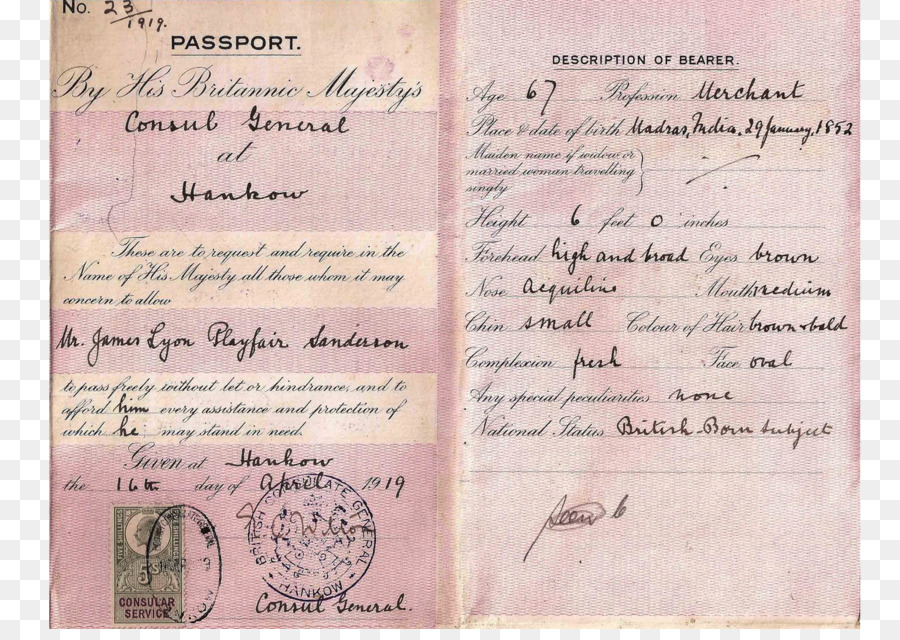 No. 23/1919.
PASSPORT.
By His Britannic Majesty's
Consul General
at
Hankow
These are to request and require in the
Name of His Majesty all those whom it may
concern to allow
Mr. James Lyon Playfair Sanderson
to pass freely without let or hindrance, and to
afford him every assistance and protection of
which he may stand in need.
Given at Hankow
the 16th day of April 1919
BRITISH CONSULATE GENERAL
HANKOW
FIVE SHILLINGS
5s
CONSULAR
SERVICE
Consul General.
DESCRIPTION OF BEARER.
Age 67 Profession Merchant
Place & date of birth Madras, India. 29 January, 1852
Maiden name if widow or
married woman travelling
singly
Height 6 feet 0 inches
Forehead high and broad Eyes brown
Nose Acquiline Mouth medium
Chin small Colour of Hair brown & bald
Complexion fresh Face oval
Any special peculiarities none
National Status British-Born subject